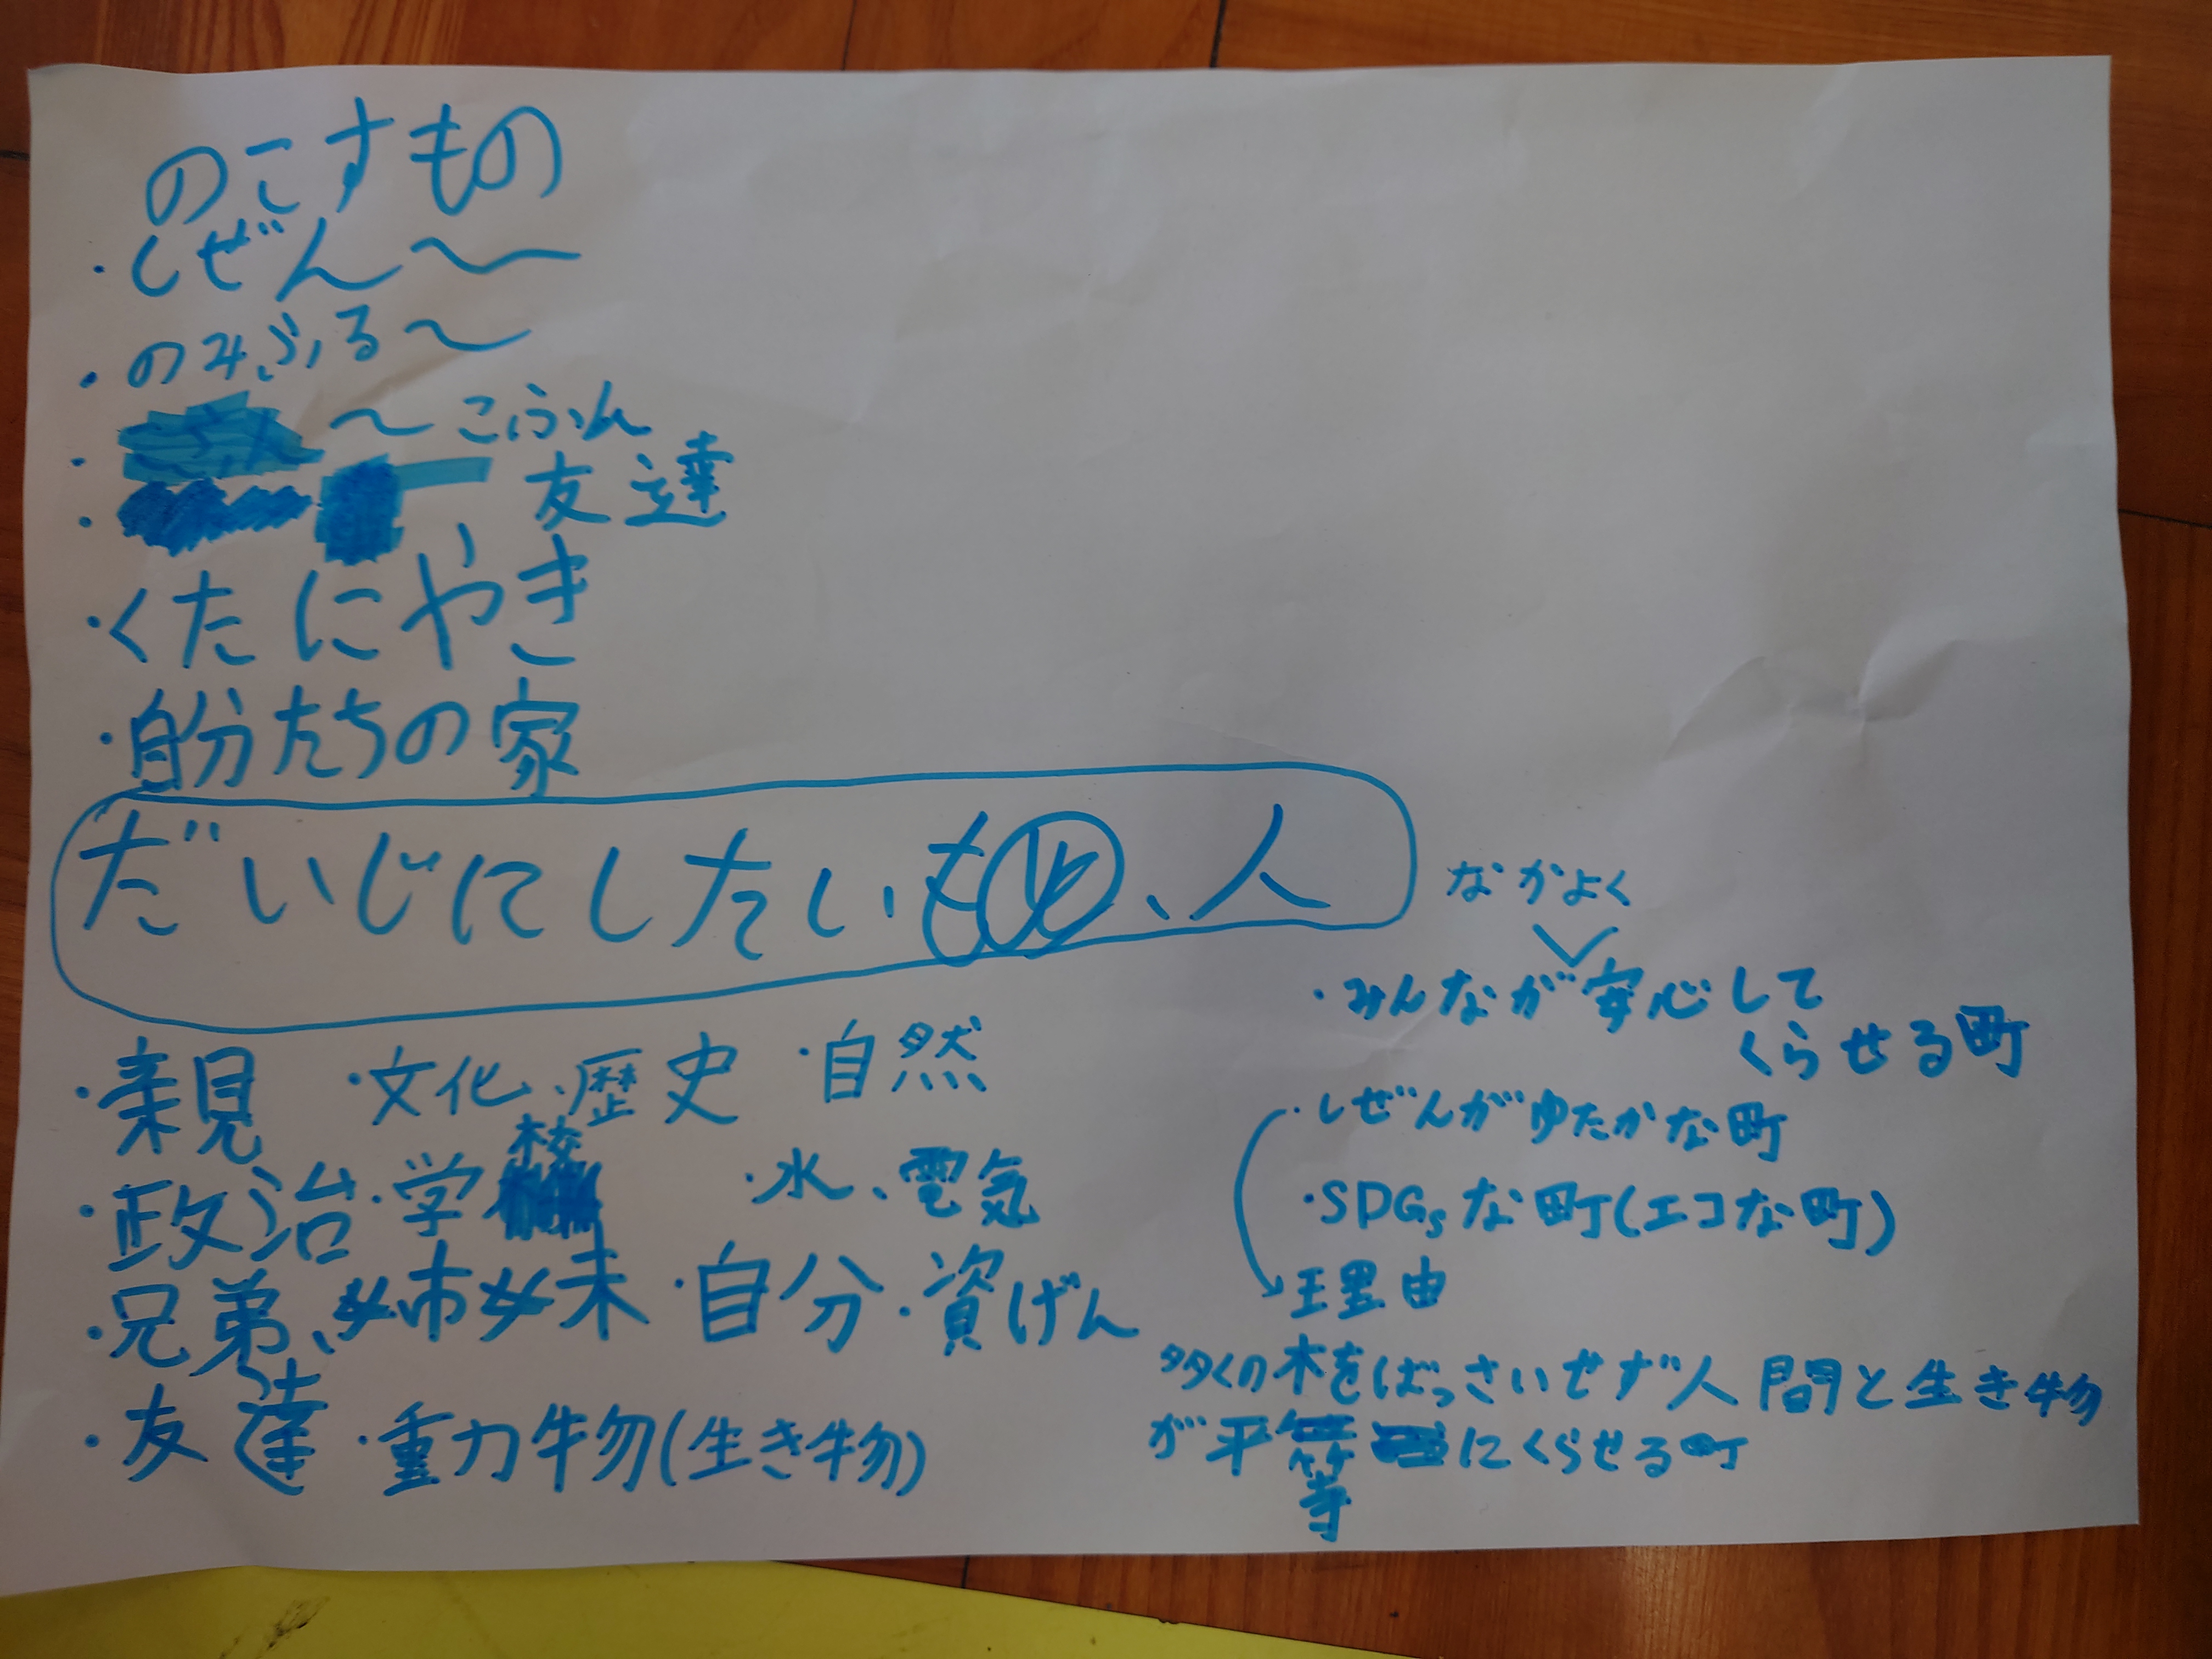 のこすもの
・しぜん〜
・のみぶる〜
・〜こふん
・友達
・くたにやき
・自分たちの家
だいじにしたいもの、人
・親 ・文化、歴史 ・自然
・政治 ・学校 ・水、電気
・兄弟、姉妹 ・自分 ・資げん
・友達 ・動物(生き物)
なかよく
・みんなが安心して
くらせる町
・しぜんがゆたかな町
・SDGsな町(エコな町)
理由
多くの木をばっさいせず人間と生き物
が平等にくらせる町